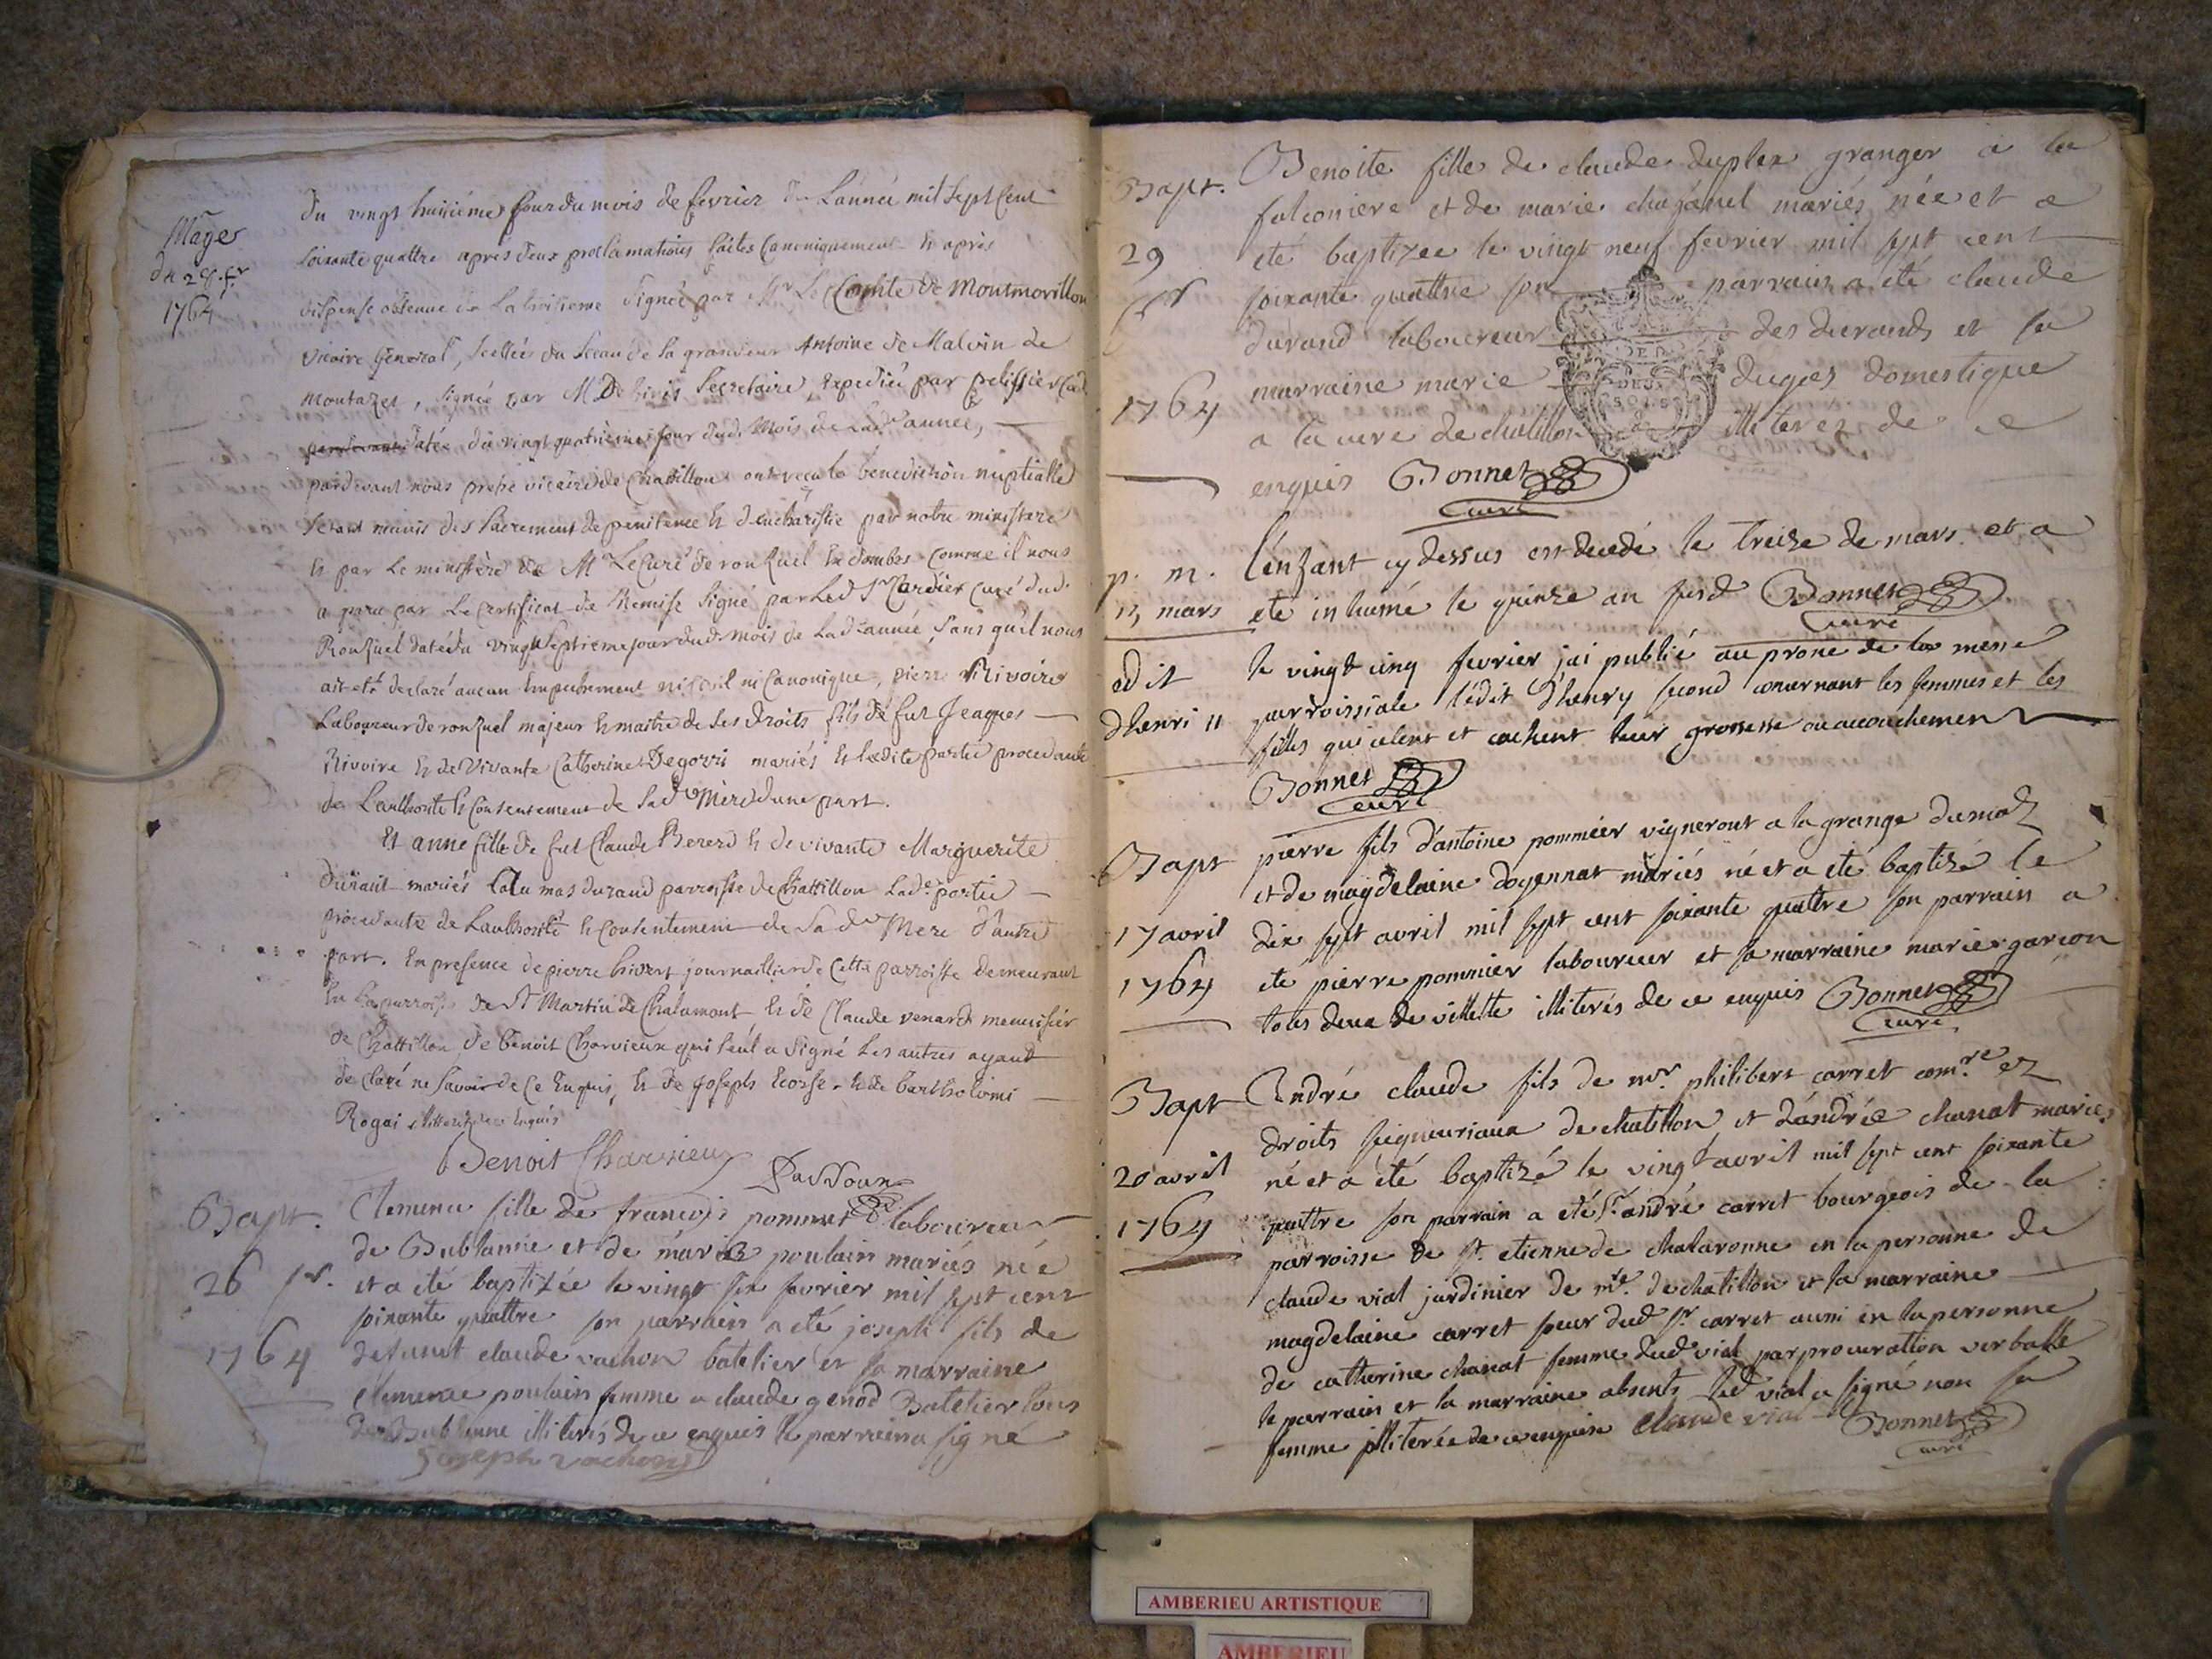 Mage
du 28. fr
1764
Du vingt huitième jour du mois de fevrier de L'année mil sept Cent
soixante quattre après deux proclamations faites Canoniquement et après
dispense obtenue de La troisieme signée par Mr Le Comte de Montmorillon
Vicaire General, scellée du sceau de sa grandeur Antoine de Malvin de
Montazet, signée par M Secretaire, Expediée par
datée du vingt quatrième jour dud. Mois de Lad. année,
pardevant nous pretre vicaire de Chatillon ont recu la benediction nuptialle
setant munis des sacrement de penitence et d'eucharistie par notre ministere
et par Le ministère de Mr Le Curé de ronzuel en dombes comme il nous
a paru par Le Certificat de Remise signé par Led. Sr Cardier curé dud.
Ronzuel daté du vingt septieme jour dud. mois de Lad. année, sans qu'il nous
ait eté declaré aucun Empechement ni civil ni Canonique, pierre Rivoire
Laboureur de ronzuel majeur et maitre de ses droits fils de fut Jeaques
Rivoire et de Vivante Catherine Degorri mariés et ladite partie procedante
de L'authorité et Consentement de sad. Mère d'une part.
Et anne fille de fut Claude Bererd et de vivante Marguerite
Durand mariés mas durand parroisse de Chattillon Lade. partie
procedante de Lauthorité et Consentement de Sad. Mere d'autre
part. En presence de pierre hivert journaillier de Cette parroisse demeurant
En La parroisse de St Martin de Chalamont et de Claude venard menuisier
de Chattillon, de benoit Charvieux qui seul a signé les autres ayant
declaré ne savoir de Ce Enquis, et de joseph Ecosse et de bartholomi
Rogai illiteré de ce Enquis
Benoit Charvieux
Bapt.
26 fr.
1764
Clemence fille de francois pommet laboureur
de Bublanne et de marie poulain mariés née
et a été baptizée le vingt six fevrier mil sept cent
soixante quattre son parrain a été joseph fils de
defunct claude vachon batelier et sa marraine
clemence poulain femme a claude genod Batelier tous
de Bublanne illiterés de ce enquis le parrain a signé
Joseph vachon
Bapt.
29
fr
1764
Benoite fille de claude duplex granger a la
falconiere et de marie mariés née et a
eté baptizee le vingt neuf fevrier mil sept cent
soixante quattre son parrain a eté claude
durand laboureur des durands et sa
marraine marie dugoes domestique
a la cure de chatillon illiterez de ce
enquis Bonnet
curé
p. m.
15 mars
L'enfant cy dessus est decedé le treize de mars et a
eté inhumé le quinze au susd Bonnet
curé
edit
d'henri 11
le vingt cinq fevrier j'ai publié au prone de la messe
parroissiale l'édit d'henry second concernant les femmes et les
filles qui celent et cachent leur grossesse ou accouchement
Bonnet
curé
Bapt
17 avril
1764
pierre fils d'antoine pommier vigneront a la grange dumas
et de magdelaine doyennat mariés né et a eté baptizé le
dix sept avril mil sept cent soixante quattre son parrain a
eté pierre pommier laboureur et sa marraine marie garcon
tous deux de villette illiterés de ce enquis Bonnet
curé
Bapt
20 avril
1764
André claude fils de mr. philibert carret com.re ez
droits seigneuriaux de chatillon et d'andrée chanat mariés
né et a été baptizé le vingt avril mil sept cent soixante
quattre son parrain a eté Sr. andré carret bourgeois de la
parroisse de St. etienne de chalaronne en la personne de
claude vial jardinier de mr. de chatillon et sa marraine
magdelaine carret soeur dud Sr. carret aussi en la personne
de catherine chanat femme dud vial par procuration verballe
le parrain et la marraine absents led vial a signé non sa
femme illiterée de ce enquise claude vial Bonnet
curé
AMBERIEU ARTISTIQUE
AMBERIEU